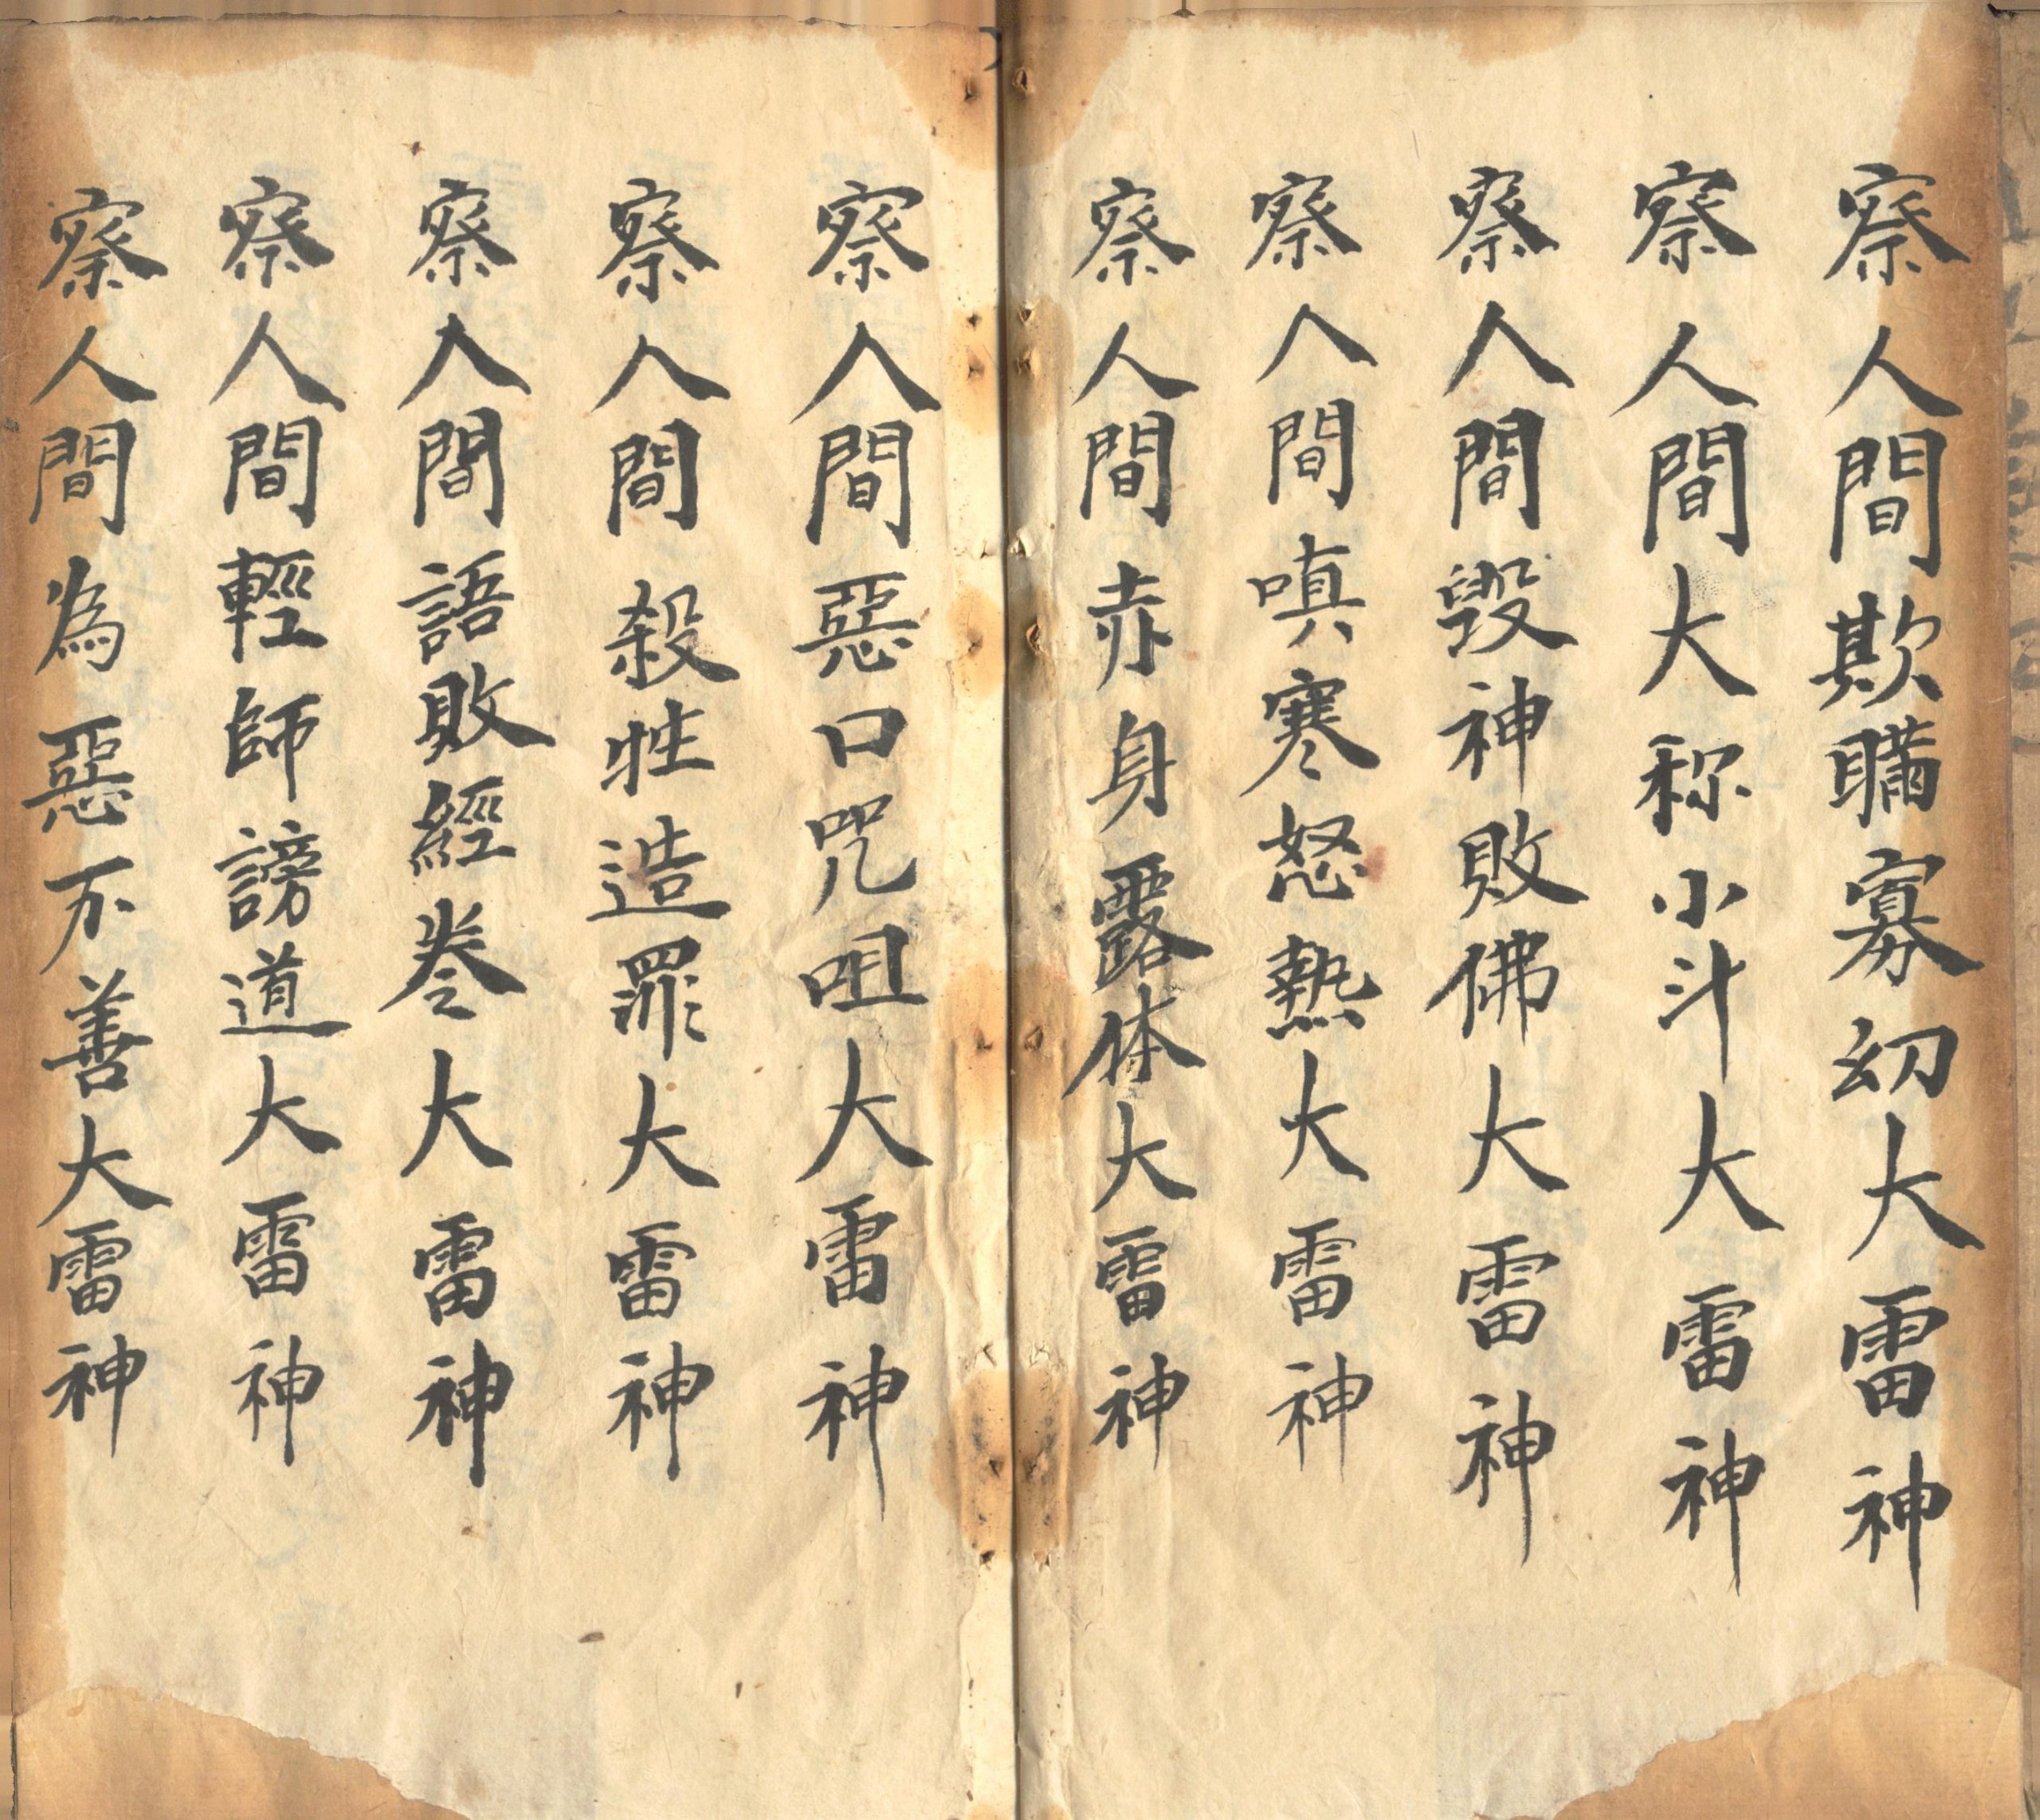 察人間欺瞞寡幼大雷神
察人間大称小斗大雷神
察人間毀神敗佛大雷神
察人間嗔寒怒熱大雷神
察人間赤身露体大雷神
察人間惡口咒咀大雷神
察人間殺牲造罪大雷神
察人間語敗經巻大雷神
察人間輕師謗道大雷神
察人間為惡不善大雷神